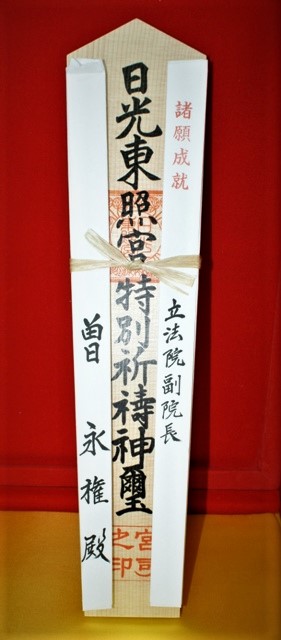 諸願成就
立法院副院長
日光東照宮特別祈禱神璽
宮司之印
曽永権殿